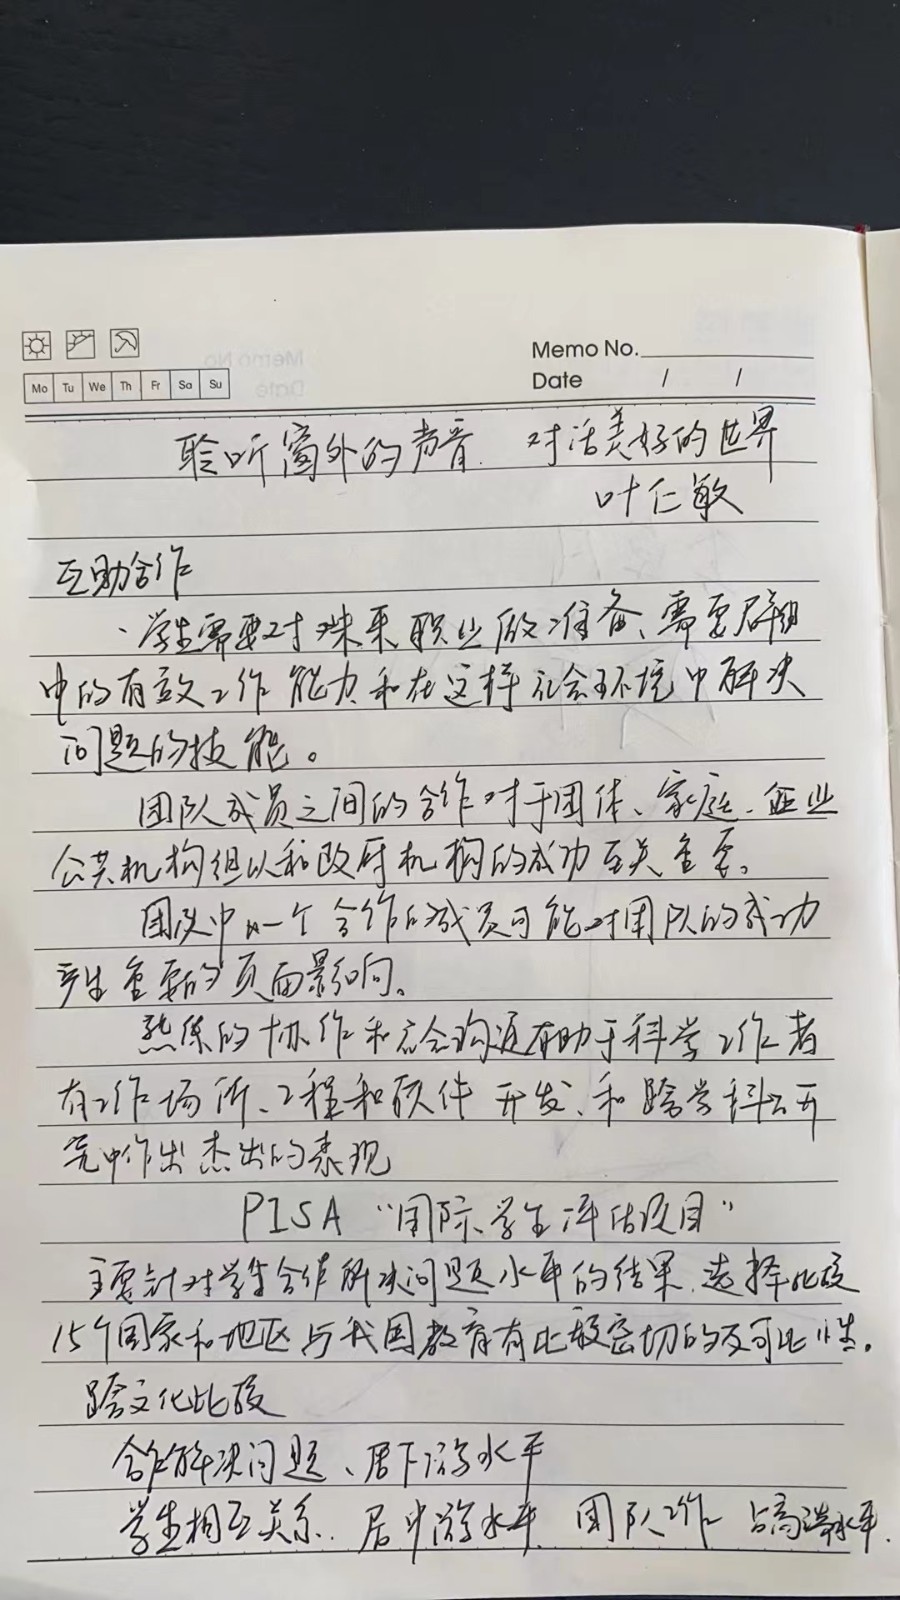 Memo No.
Date / /
Mo Tu We Th Fr Sa Su
聆听窗外的声音. 对话美好的世界
叶仁敏
互助合作
、学生需要对未来职业做准备、需要群组
中的有效工作能力和在这样社会环境中解决
问题的技能。
团队成员之间的合作对于团体、家庭、企业
公共机构组织和政府机构的成功至关重要。
团队中一个合作的成员可能对团队的成功
产生重要的负面影响。
熟练的协作和社会沟通有助于科学工作者
在工作场所、工程和软件开发、和跨学科研
究中作出杰出的表现
PISA “国际学生评估项目”
主要针对学生合作解决问题水平的结果.选择比较
15个国家和地区与我国教育有比较密切的及可比性.
跨文化比较
合作解决问题、居下游水平
学生相互关系.居中游水平.团队工作 占高端水平.